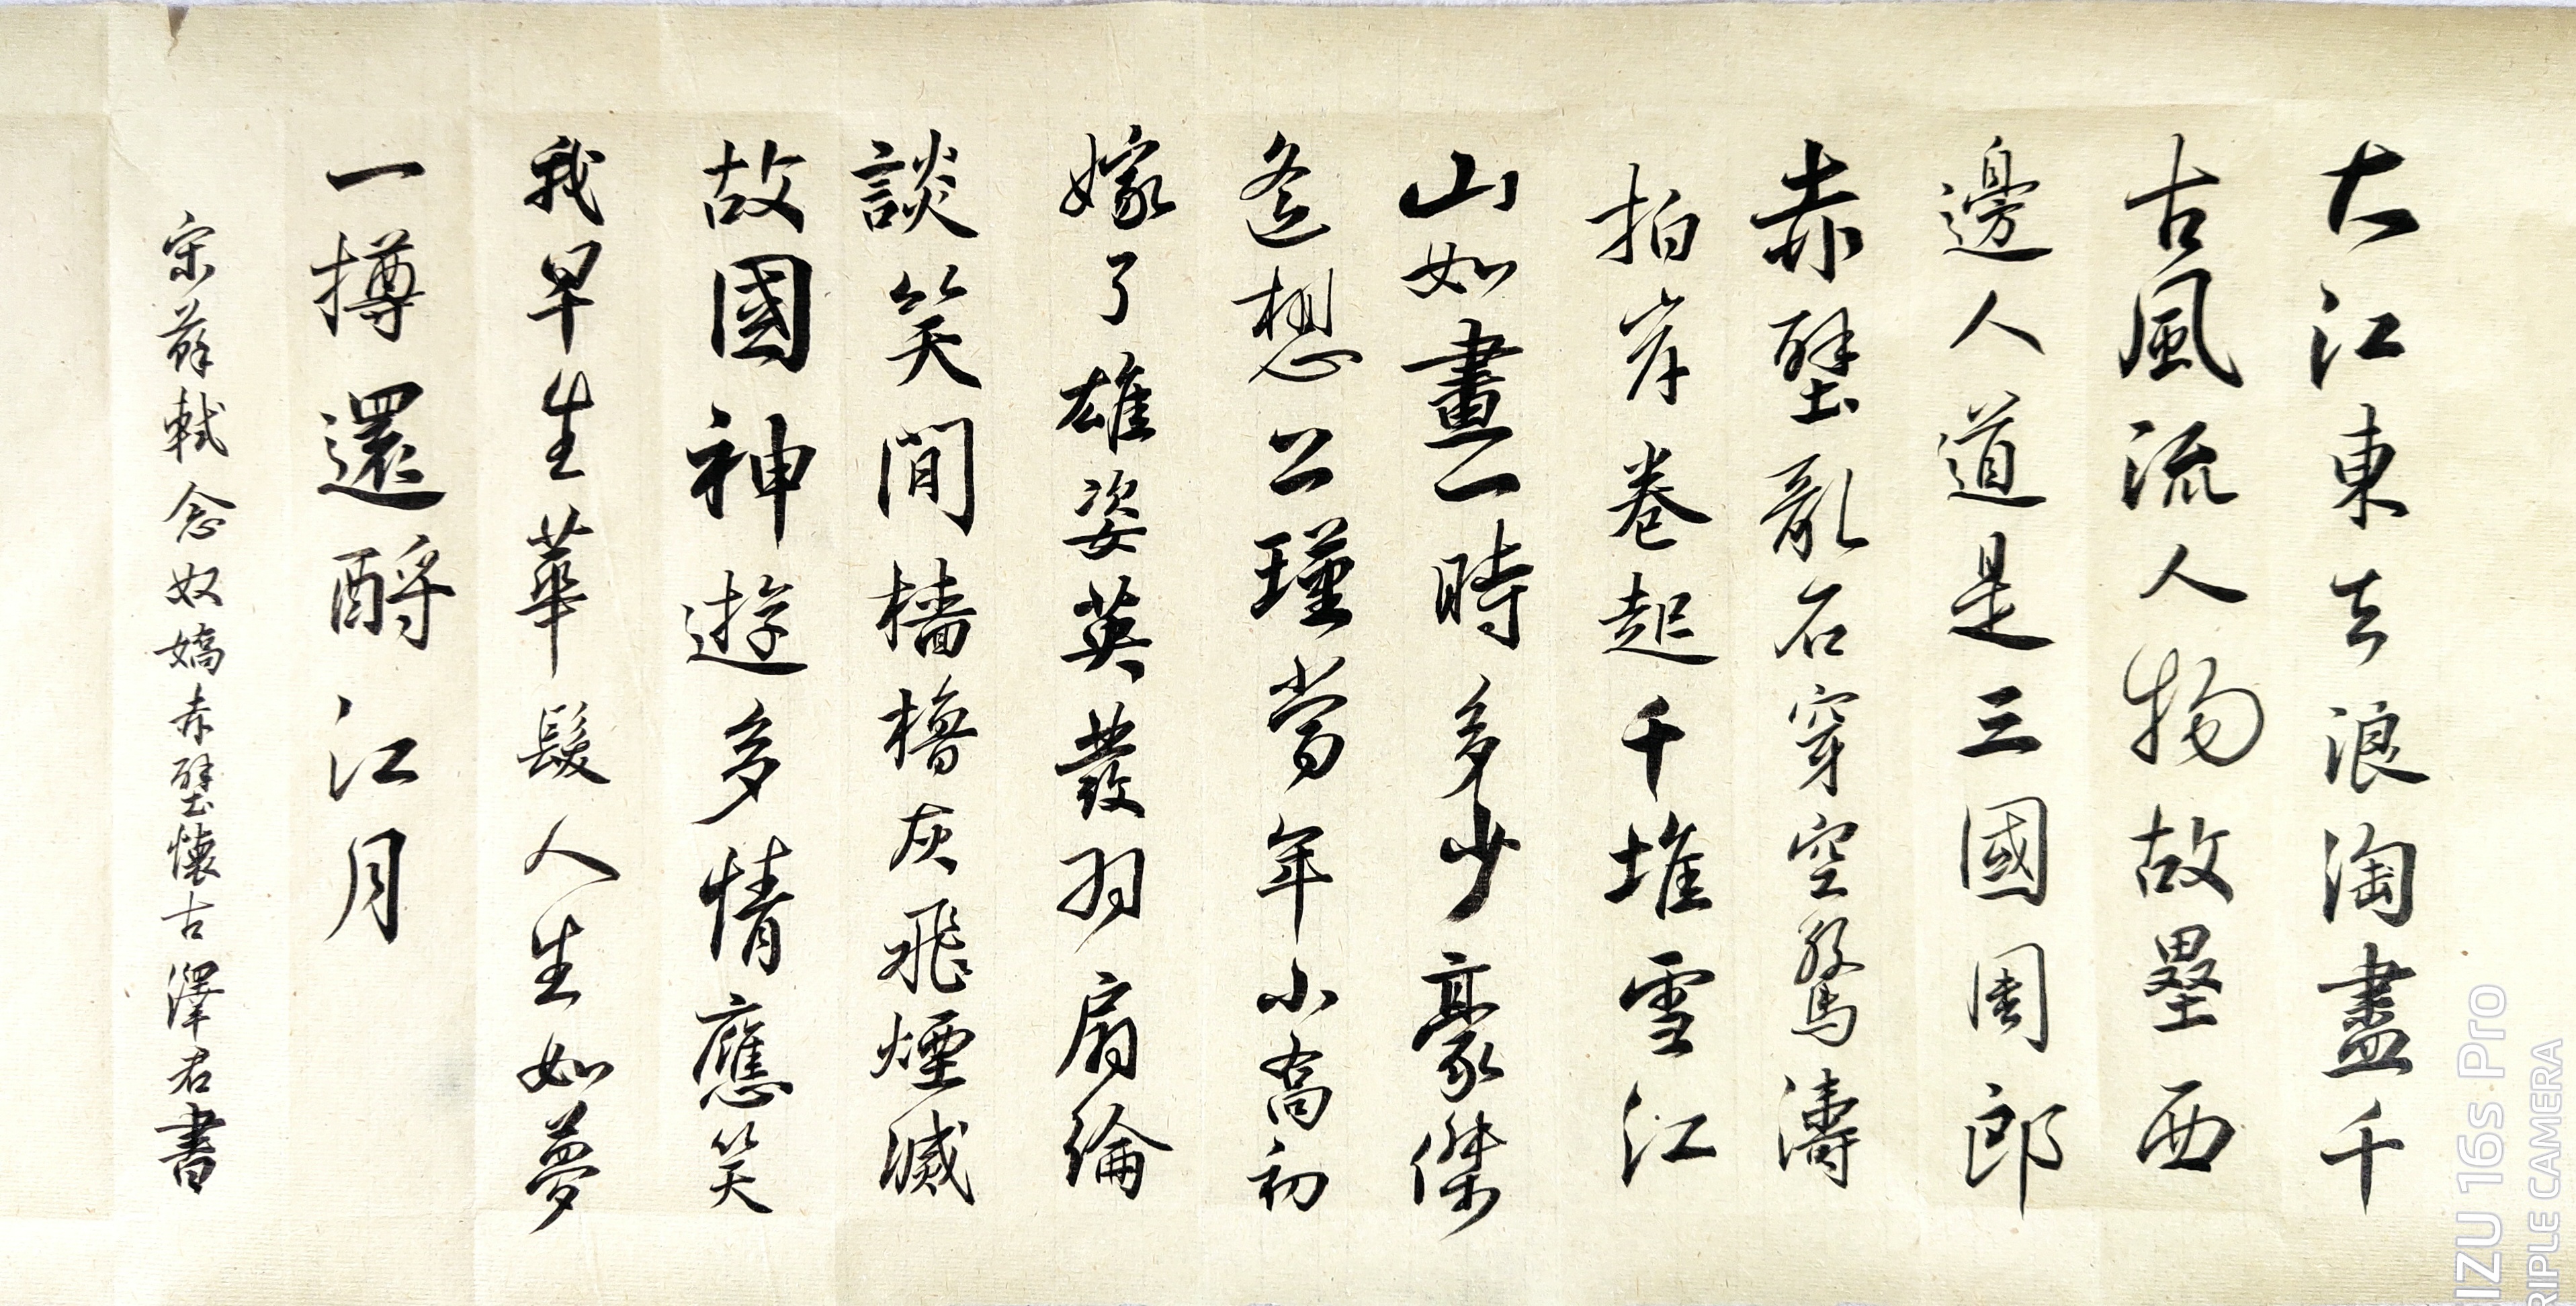 大江東去浪淘盡千
古風流人物故壘西
邊人道是三國周郎
赤壁亂石穿空驚濤
拍岸卷起千堆雪江
山如畫一時多少豪傑
遙想公瑾當年小喬初
嫁了雄姿英發羽扇綸
談笑間檣櫓灰飛煙滅
故國神遊多情應笑
我早生華髮人生如夢
一樽還酹江月
宋蘇軾念奴嬌赤壁懷古 澤君書
IZU 16s Pro
RIPLE CAMERA